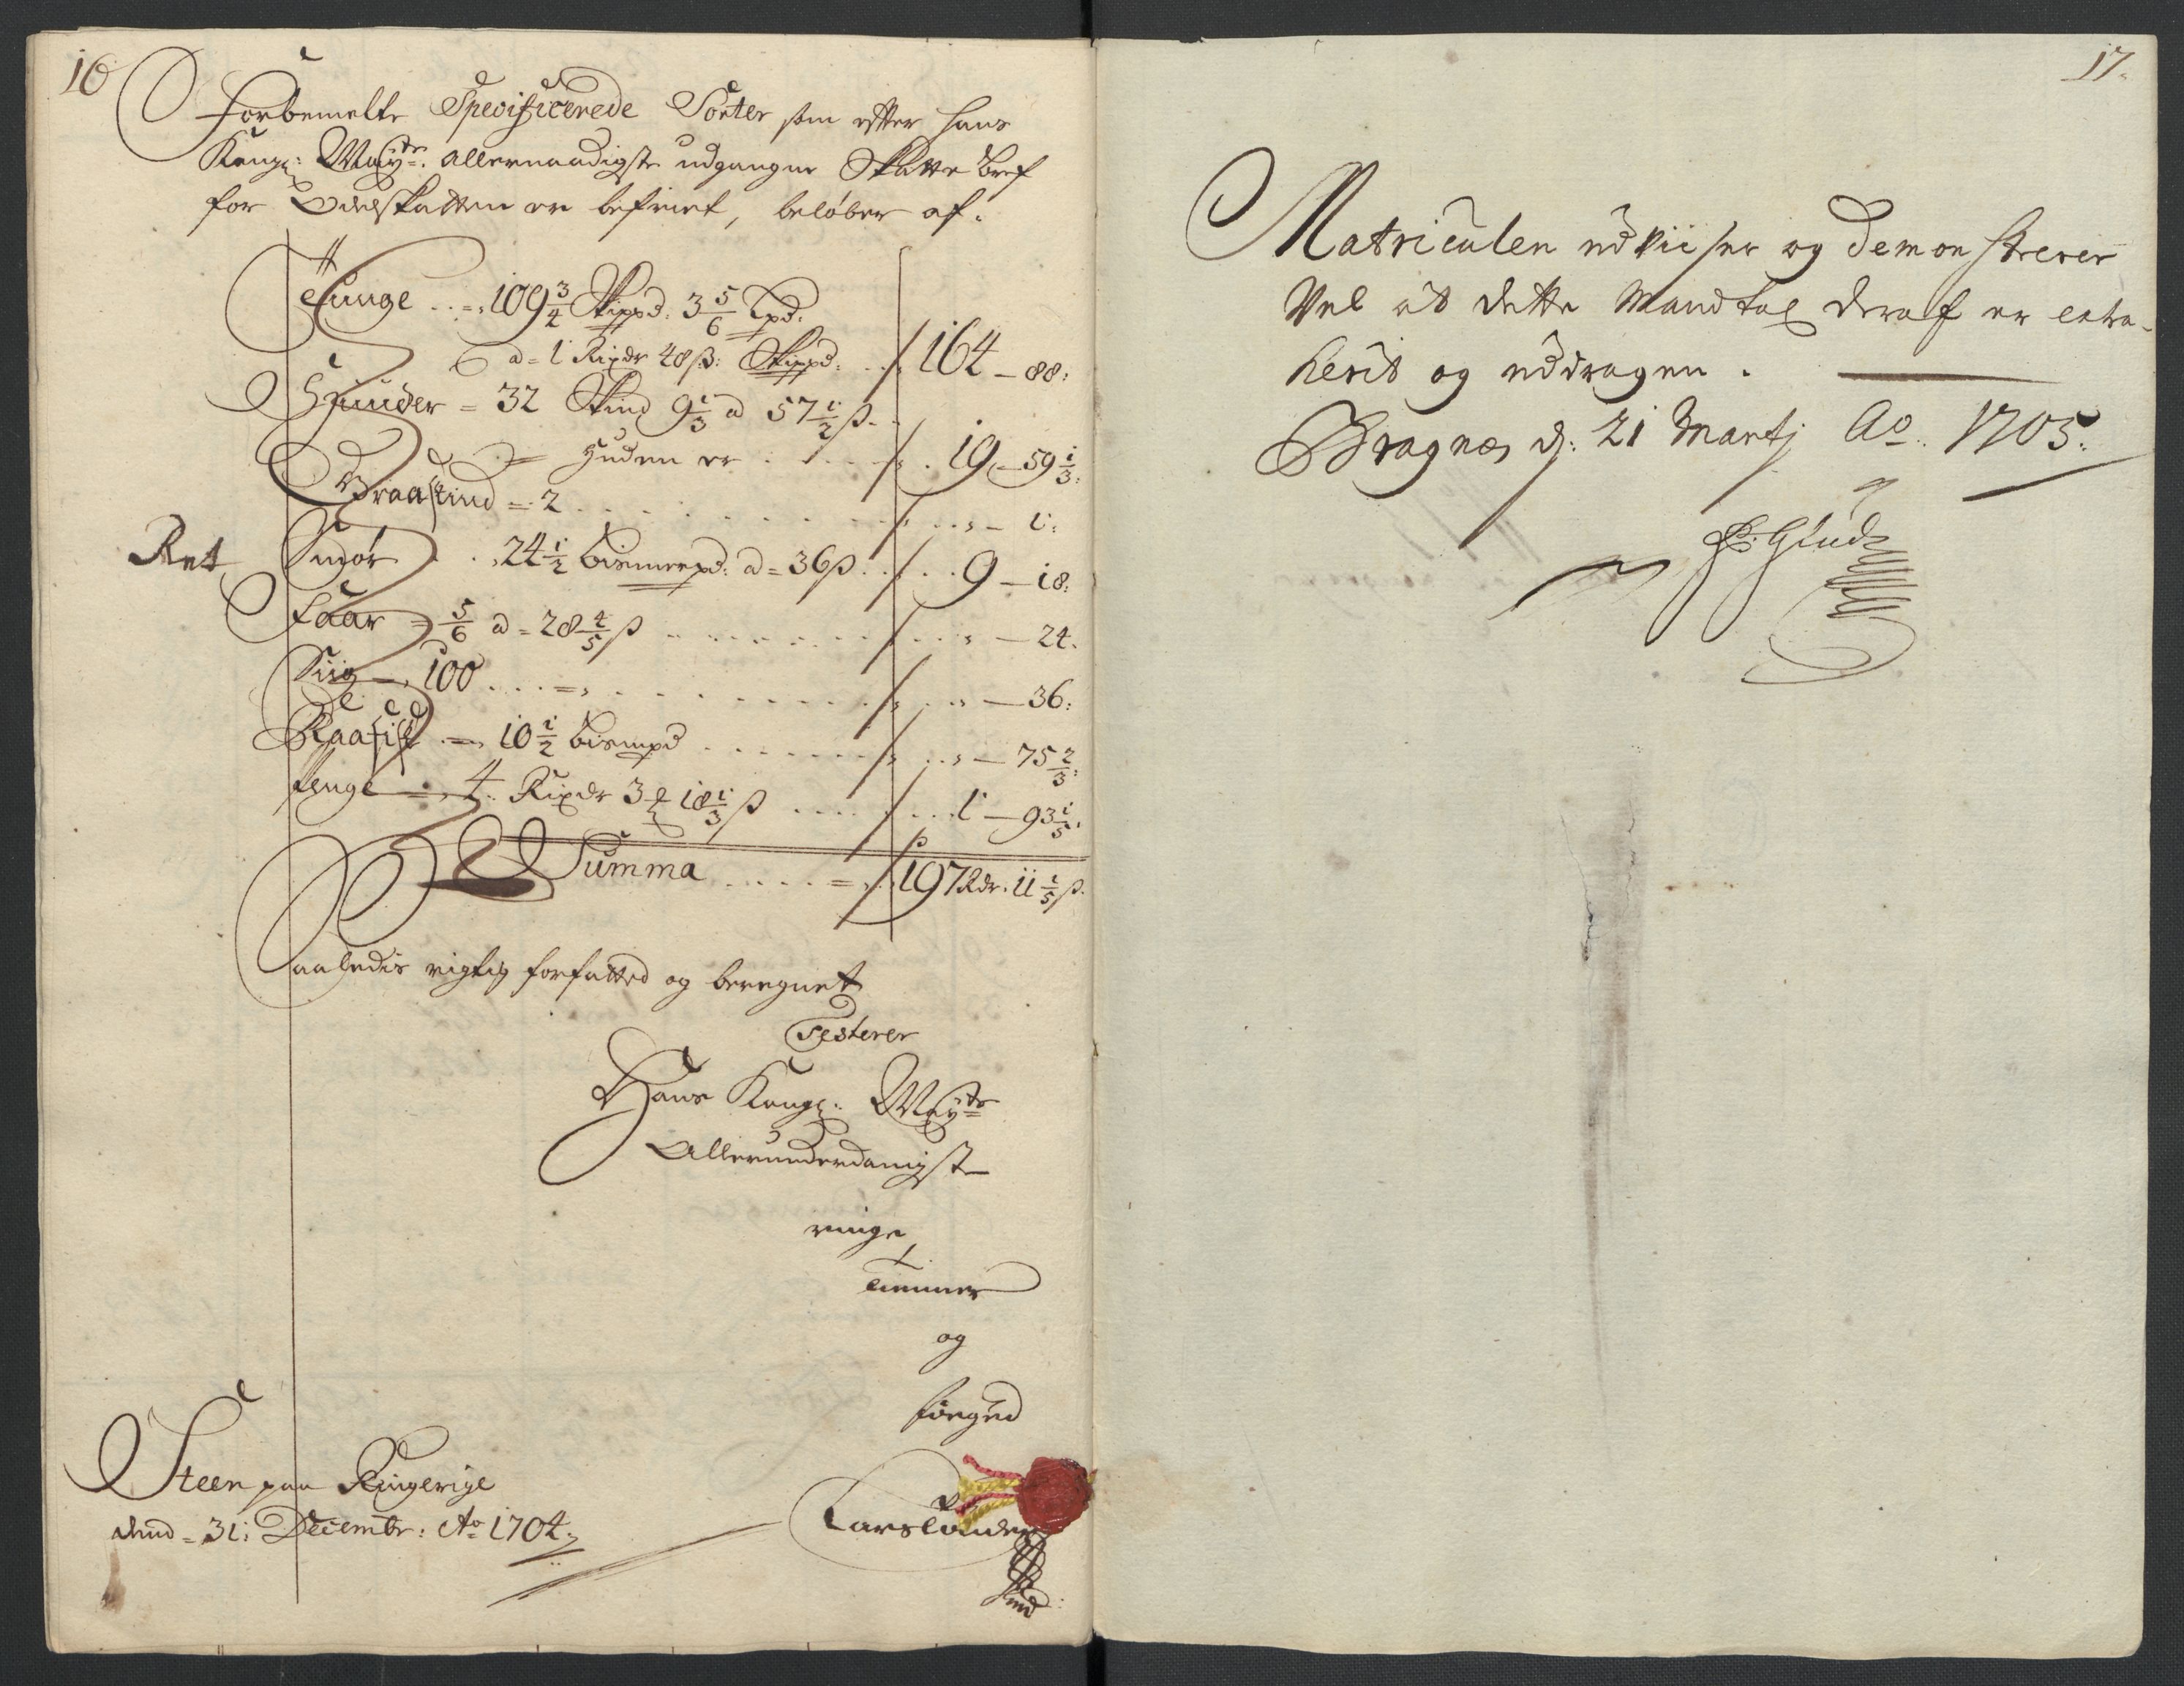 16
Forbemelte Specificerede Sorter som efter hans
Kongl: Mayts: allernaadigste udgangne Skatte bref
for Odelskatten er befriet, beløber af:
Tunge .. = 109 3/4 Skippd: 3 5/6 Lpd:
a = 1 Rixdr 48 ß: Skippd: . . 164 – 88:
Huuder = 32 Skind 9 1/3 a 57 1/2 ß . .
Huden er . . . . 19 – 59 1/3:
Graaskind = 2 . . . . . „ – 1:
Ret
Smør . . 24 1/2 bismerpd: a = 36 ß . . . 9 – 18:
Faar = 5/6 a = 28 4/5 ß . . . . . „ – 24.
Siig = 100 . . . = . . . . . „ – 36:
Raafisk = 10 1/2 bismpd . . . . . „ – 75 2/3:
Penge = 4. Rixdr 3 18 1/3 ß . . . . 1 – 93 1/5:
Summa . . . . = . . 197 Rdr. 11 1/5 ß.
Saaledis rigtig forfatted og beregnet
Testerer
Hans Kongl: Mayts
Allerunderdanigste
ringe
tienner
og
foeged
Steen paa Ringerige
dend = 31: Decembr: Ao 1704
17.
Matriculen udviiser og demonstrerer
Vel at dette Mandtal deraf er extra-
herit og uddragen.
Bragnæs d: 21 Martj Ao. 1705.